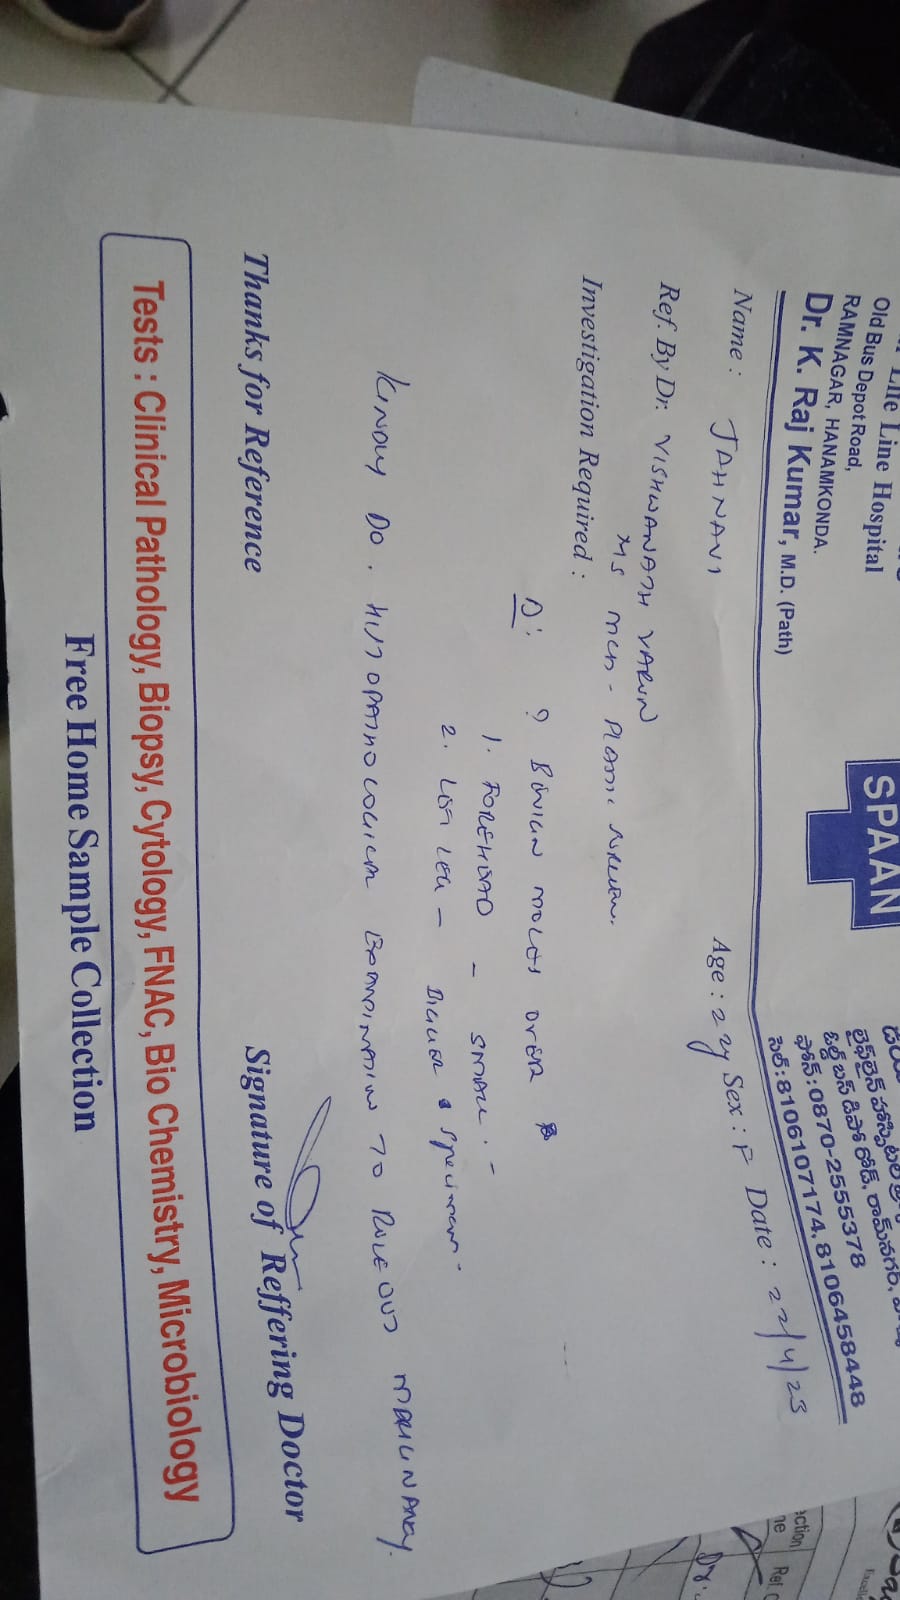 Life Line Hospital
Old Bus Depot Road,
RAMNAGAR, HANAMKONDA.
Dr. K. Raj Kumar, M.D. (Path)
SPAAN
లైఫ్‌లైన్ హాస్పిటల్
ఓల్డ్ బస్ డిపో రోడ్, రామ్‌నగర్,
ఫోన్ : 0870-2555378
సెల్ : 8106107174, 8106458448
Name : JAHNAVI Age : 2y Sex : F Date : 22/4/23
Ref. By Dr. VISHWANATH VARUN
MS MCh - Plastic
Investigation Required :
D: ? BENIGN MOLES OVER
1. FOREHEAD - SMALL -
2. LEFT LEG - BIGGER specimen -
KINDLY DO. HISTOPATHOLOGICAL EXAMINATION TO RULE OUT MALIGNANCY.
Thanks for Reference
Signature of Reffering Doctor
Tests : Clinical Pathology, Biopsy, Cytology, FNAC, Bio Chemistry, Microbiology
Free Home Sample Collection